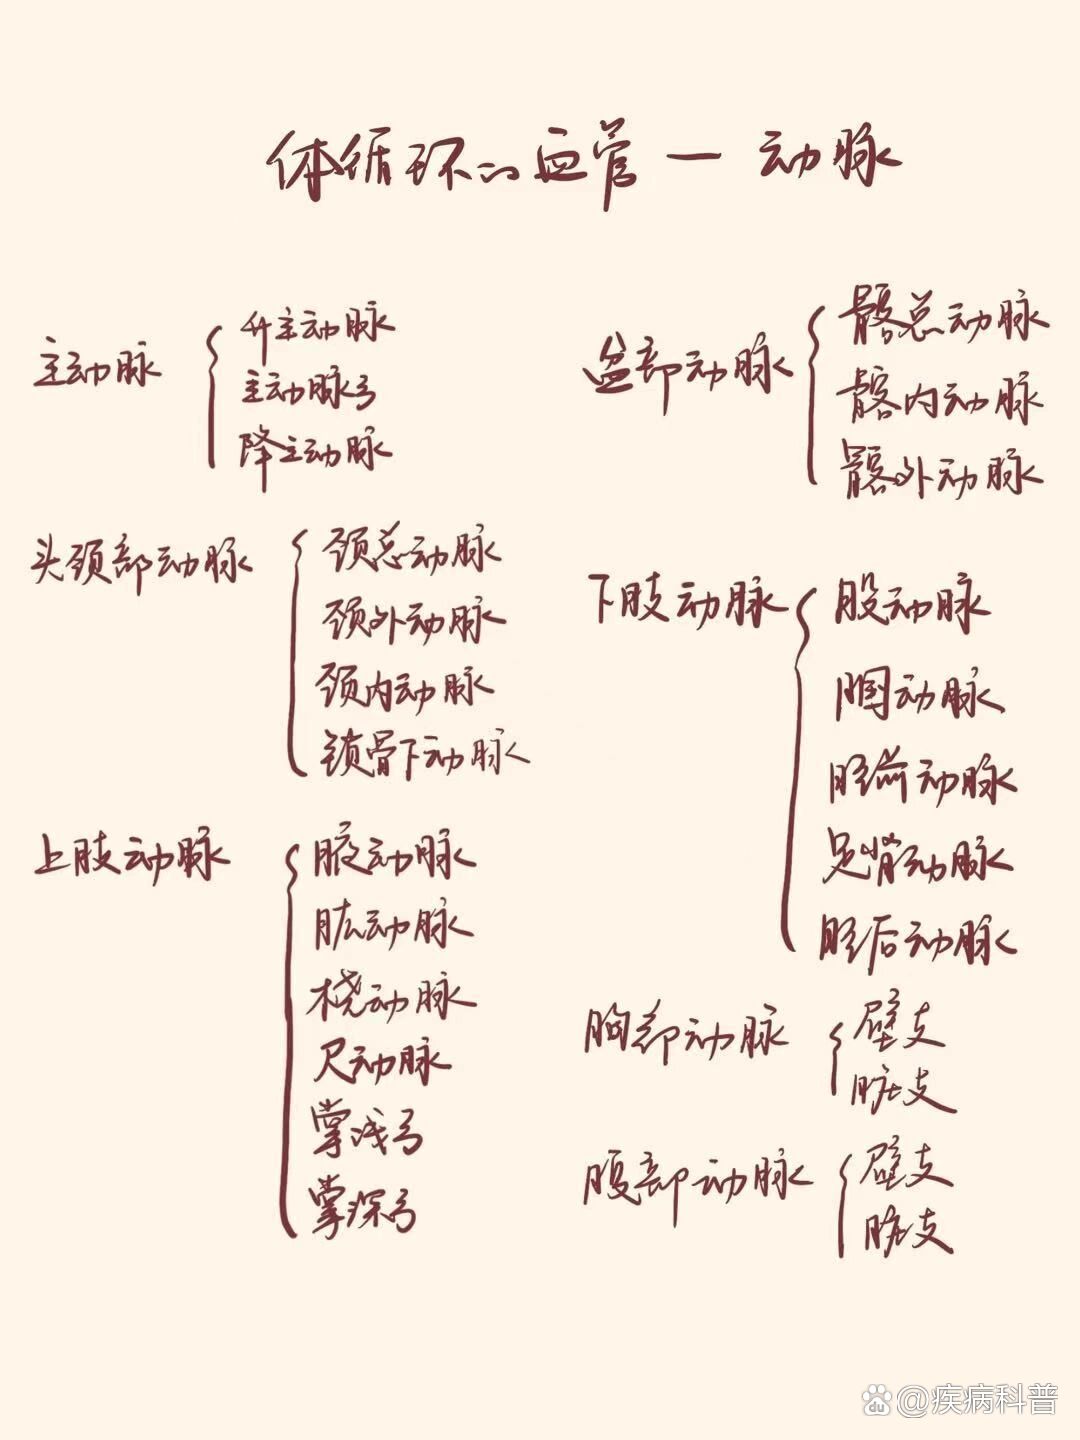 体循环的血管一动脉
主动脉
升主动脉
主动脉弓
降主动脉
头颈部动脉
颈总动脉
颈外动脉
颈内动脉
锁骨下动脉
上肢动脉
腋动脉
肱动脉
桡动脉
尺动脉
掌浅弓
掌深弓
盆部动脉
髂总动脉
髂内动脉
髂外动脉
下肢动脉
股动脉
腘动脉
胫前动脉
足背动脉
胫后动脉
胸部动脉
壁支
脏支
腹部动脉
壁支
脏支
du @疾病科普